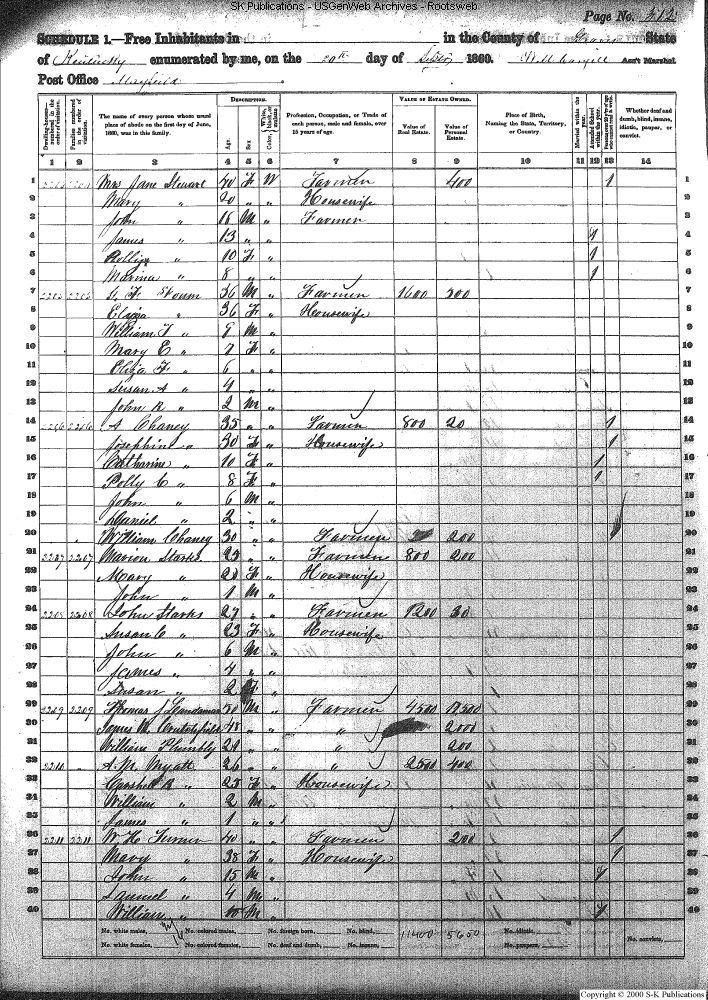 SK Publications - USGenWeb Archives - Rootsweb
Page No. 512
SCHEDULE 1.—Free Inhabitants in in the County of Graves State
of Kentucky enumerated by me, on the 20th day of 1860. Ass't Marshal.
Post Office Mayfield
Dwelling-houses—numbered in the order of visitation.
Families numbered in the order of visitation.
The name of every person whose usual place of abode on the first day of June, 1860, was in this family.
DESCRIPTION.
Age.
Sex
Color, White, black, or mulatto
Profession, Occupation, or Trade of each person, male and female, over 15 years of age.
VALUE OF ESTATE OWNED.
Value of Real Estate.
Value of Personal Estate.
Place of Birth, Naming the State, Territory, or Country.
Married within the year.
Attended School within the year.
Whether deaf and dumb, blind, insane, idiotic, pauper, or convict.
1 2 3 4 5 6 7 8 9 10 11 12 13 14
1 Mrs Jane Stewart 40 F W Farmer 400 1 1
2 Mary " 20 " " Housewife 2
3 John " 16 M " Farmer 3
4 James " 13 " " 1 4
5 " 10 F " 1 5
6 Marina " 8 " " 1 6
7 36 M " Farmer 1600 300 7
8 Eliza " 36 F " Housewife 8
9 William T " 9 M " 9
10 Mary E " 7 F " 10
11 Eliza F " 6 " " 11
12 Susan A " 4 " " 12
13 John R " 2 M " 13
14 2206 2206 A Chaney 35 " " Farmer 800 20 1 14
15 Josephine " 30 F " Housewife 1 15
16 Catharine " 10 F " 1 16
17 Polly C " 8 F " 1 17
18 John " 6 M " 18
19 Daniel " 2 " " 19
20 William Chaney 30 " " Farmer 200 20
21 2207 2207 Marion Starks 23 " " Farmer 800 200 21
22 Mary " 20 F " Housewife 22
23 John " 1 M " 23
24 2208 2208 John Starks 27 " " Farmer 1200 30 24
25 Susan C " 23 F " Housewife 25
26 John " 6 M " 26
27 James " 4 " " 27
28 Susan " 2 F " 28
29 2209 2209 Thomas J 50 M " Farmer 4500 29
30 James M. Crutchfield 48 " " " 2000 30
31 William Plumbly 21 " " " 200 31
32 2210 A. M. Wyatt 26 " " " 2500 400 32
33 R " 25 F " Housewife 33
34 William " 2 M " 34
35 James " 1 " " 35
36 2211 2211 W. H. Turner 40 " " Farmer 200 1 36
37 Mary " 38 F " Housewife 1 37
38 John " 15 M " 1 38
39 Samuel " 4 M " 39
40 William " 10 M " 1 40
No. white males, No. colored males, No. foreign born, No. blind, 11400 No. idiotic,
No. white females, No. colored females, No. deaf and dumb, No. insane, No. paupers, No. convicts,
Copyright © 2000 S-K Publications